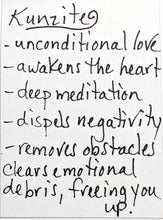 Kunzite
-unconditional love
-awakens the heart
-deep meditation
-dispels negativity
-removes obstacles
clears emotional
debris, freeing you
up.